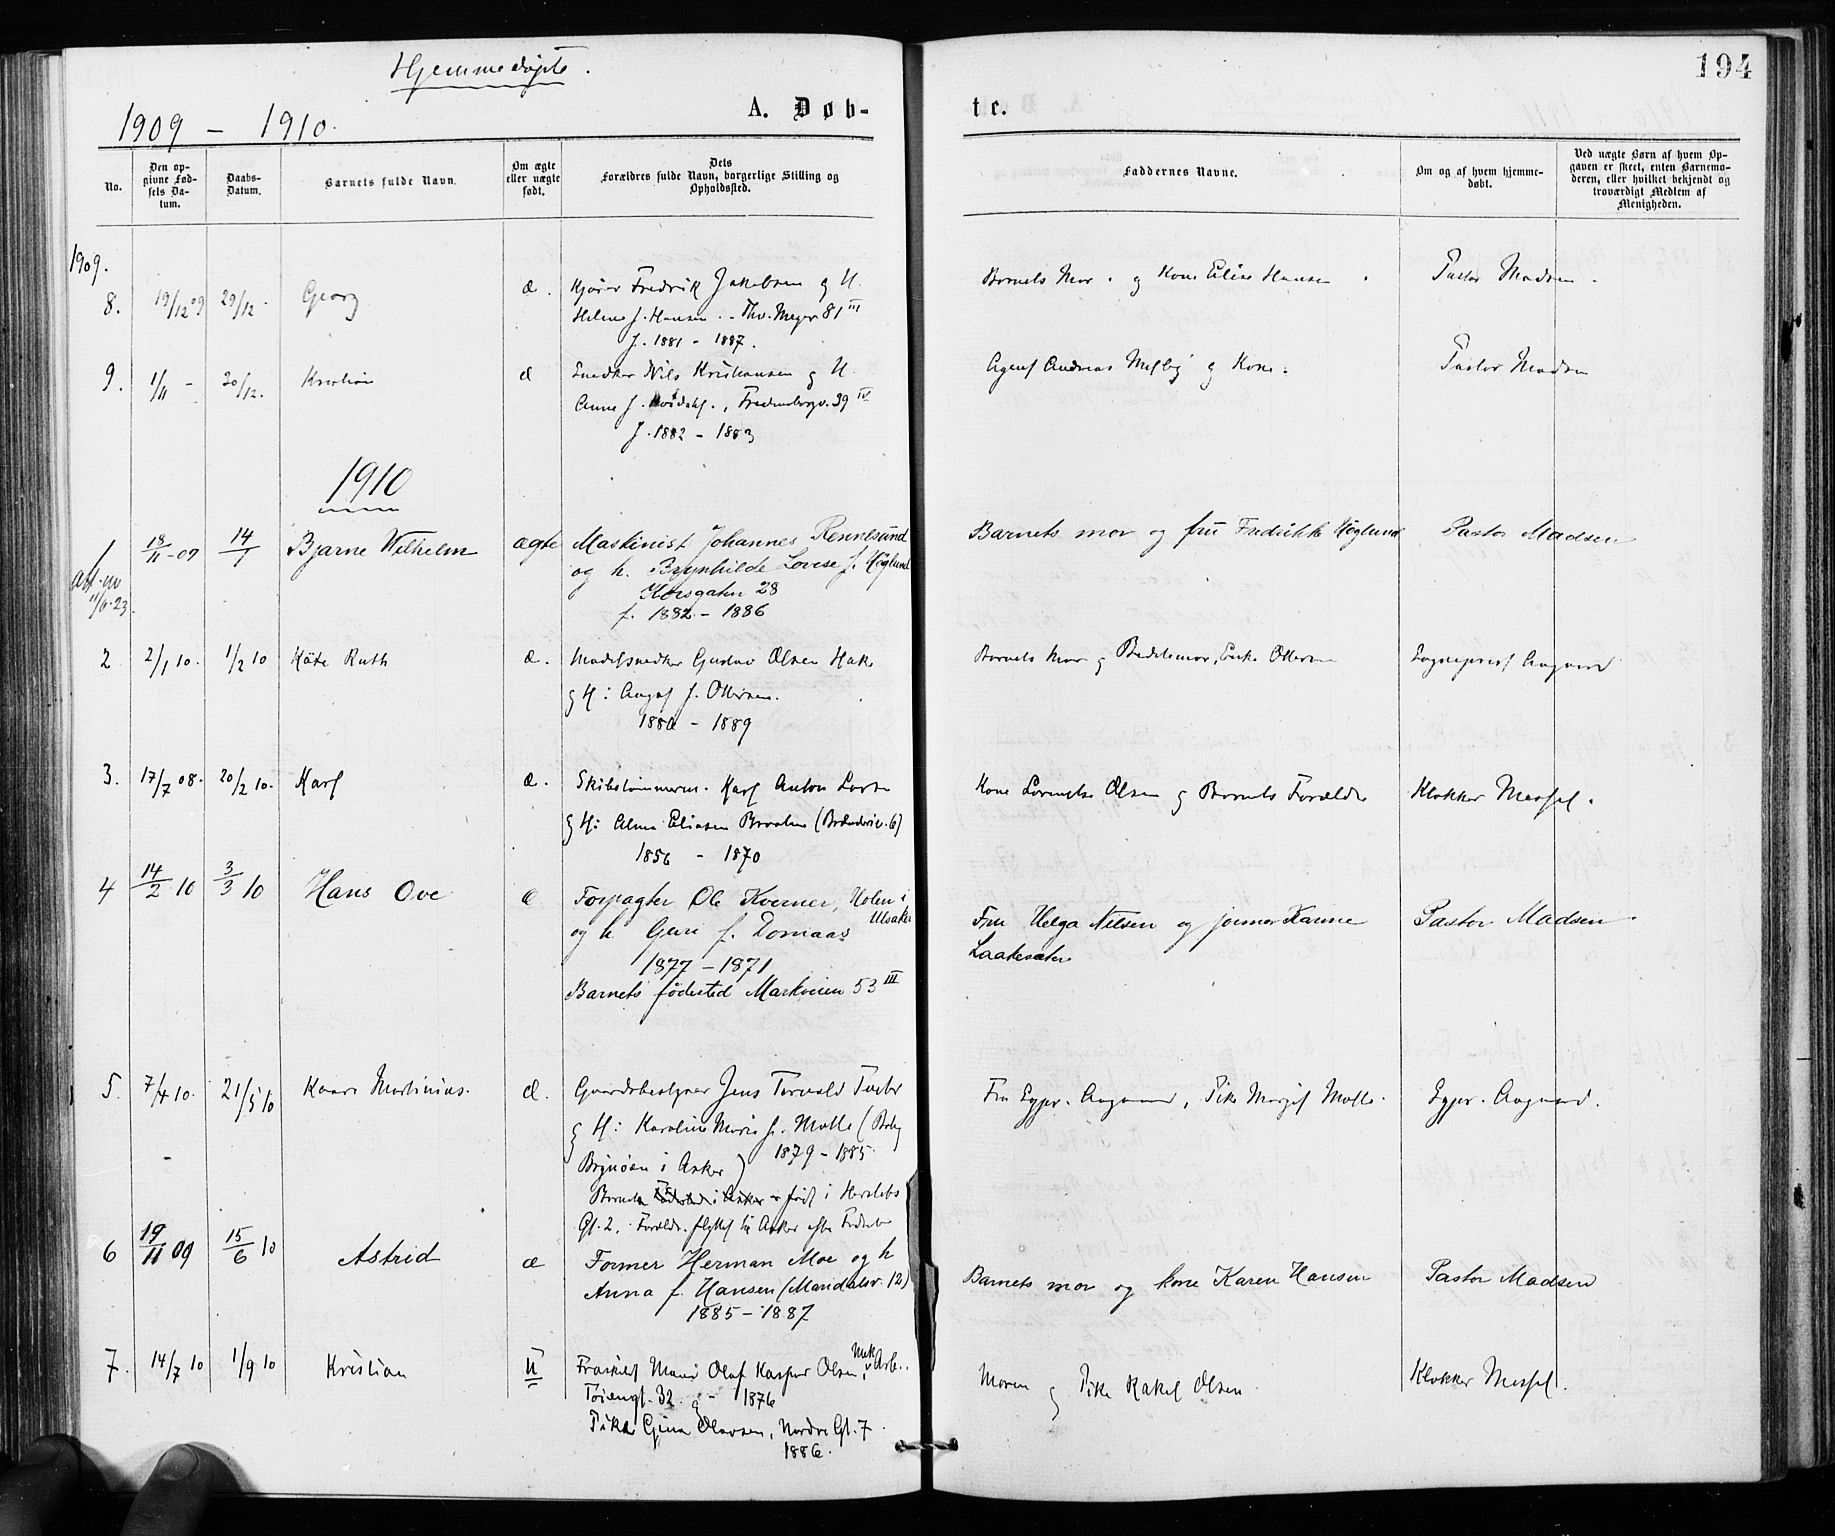 Hjemmedøpte.
194
1909 – 1910.
A. Døb-
te.
No.
Den op-
givne Fød-
sels Da-
tum.
Daabs-
Datum.
Barnets fulde Navn.
Om ægte
eller uægte
født.
Dets
Forældres fulde Navn, borgerlige Stilling og
Opholdssted.
Faddernes Navne.
Om og af hvem hjemme-
døbt.
Ved uægte Børn af hvem Op-
gaven er skeet, enten Barnemo-
deren, eller hvilket bekjendt og
troværdigt Medlem af
Menigheden.
1909.
8. 19/12 09 29/12 - Georg æ. Kjører Fredrik Jakobsen g H.
Helene f. Hansen. - Thv. Meyer 81 III
f. 1881 - 1887.
Barnets Mor. g Kone Elise Hansen
Pastor Madsen.
9. 1/11 - 20/12. Kristian æ Snedker Nils Kristiansen g H.
Anne f. , Fredensborgv. 39 IV
f. 1882 - 1883
Agent Andreas g Kone.
Pastor Madsen
1910
1 18/11-09 14/1 Bjarne Wilhelm ægte Maskinist Johannes Rennesund
og h. Brynhilde Lovise f. Höglund
Korsgaten 28
f. 1882 - 1886
11/6.23.
Barnets mor og fru Fredrikke Höglund
Pastor Madsen
2 2/1 10. 1/2 10 Käte Ruth æ. Modelsnedker Gustav Olsen Hak
g H: August f. Ottersen.
1886 - 1889
Barnets Mor g Bedstemor, Enke Ottersen
Sognepræst Aagaard
3. 17/7 08. 20/2 10. Karl æ. Skibstømmerm. Karl Anton
g H: Alma Eliasen (Brænneriv. 6)
1856 - 1870
Kone Lorentse Olsen g Barnets Forældre
Klokker Messel.
4 14/2 10 3/3 10 Hans Ove æ Forpagter Ole Kverner, Holen i
Ulsaker
og h. Guri f. Domaas
1877 - 1871
Barnets fødested Markveien 53 III
Fru Helga Nilsen og jormor Karine
Laatesæter
Pastor Madsen
5. 7/4 10. 21/5 10 Kaare Martinius. æ. Gaardsbestyrer Jens Torvald
g H: Karoline Marie f. Molle (
1879 - 1885
i Asker)
Barnets i Asker født i Herslebs
Gt. 2. Forældr. flyttet til Asker efter
Fru Sgpr. Aagaard, Pike Margit Molle.
Sgpr. Aagaard.
6 19/11 09 15/6 10 Astrid æ Former Herman Moe og h
Anna f. Hansen (Mandalsv. 12)
1885 - 1887
Barnets mor og kone Karen Hansen
Pastor Madsen
7. 14/7 10 1/9 10 Kristian u Fraskilt Mand Olaf Kasper Olsen, Mek. Arb..
Tøiengt. 32. - 1876
g
Pike Gina Olavsen, Nordre Gt. 7.
1886.
Moren g Pike Rakel Olsen
Klokker Messel.